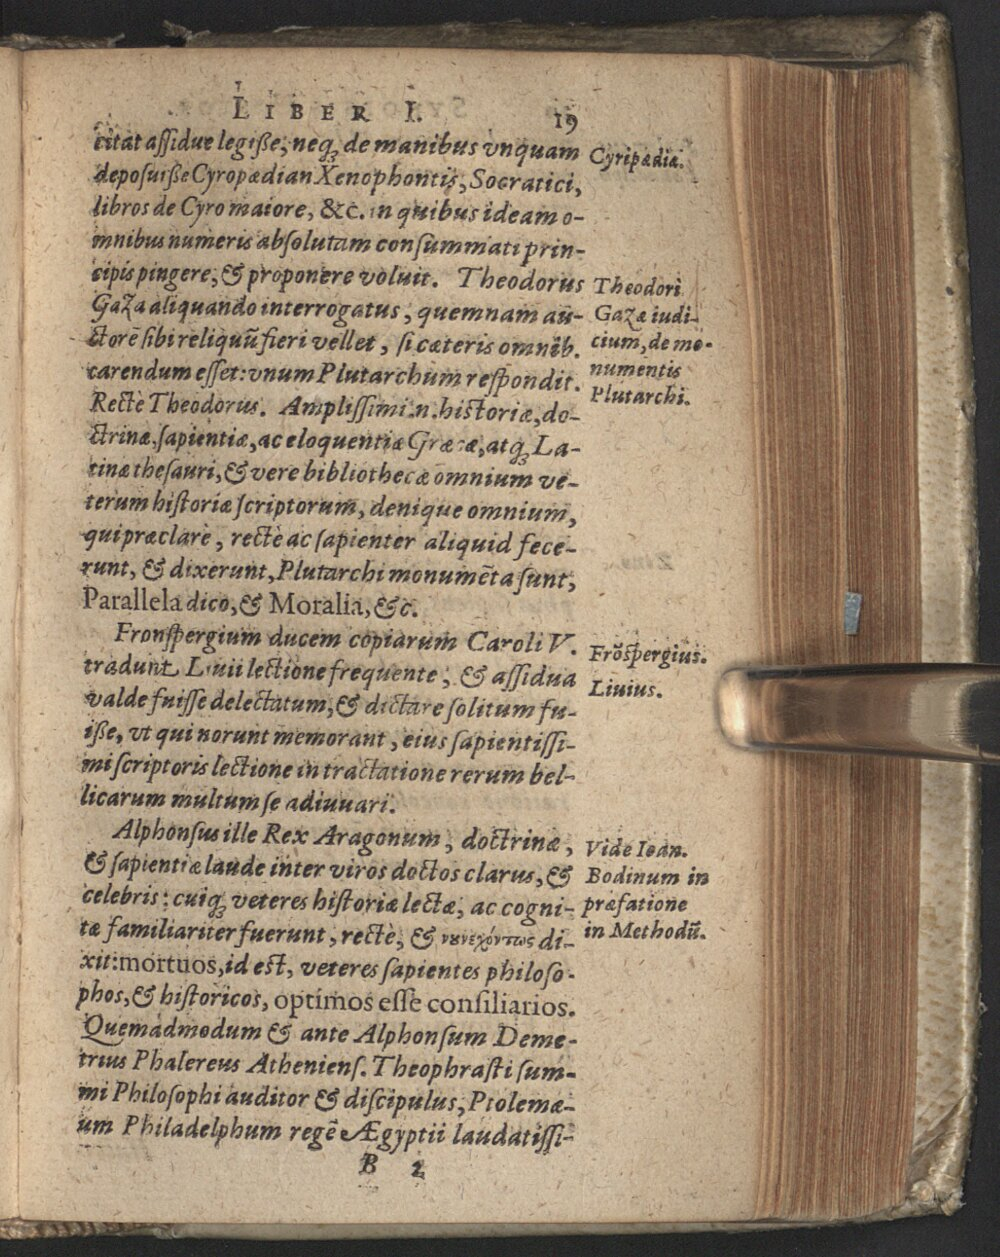 LIBER I. 19
citat aſſidue legiße, neqꝫ de manibus vnquam
depoſuiße Cyropædian Xenophontis, Socratici,
libros de Cyro maiore, &c. in quibus ideam o-
mnibus numeris abſolutam conſummati prin-
cipis pingere, & proponere voluit. Theodorus
Gaza aliquando interrogatus, quemnam au-
ctorē ſibi reliquū fieri vellet, ſi cæteris omnib.
carendum eſſet: vnum Plutarchum reſpondit.
Rectè Theodorus. Ampliſſimi.n. hiſtoriæ, do-
ctrinæ, ſapientiæ, ac eloquentiæ Græcæ, atqꝫ La-
tinæ theſauri, & vere bibliothecæ omnium ve-
terum hiſtoriæ ſcriptorum, denique omnium,
qui præclarè, rectè ac ſapienter aliquid fece-
runt, & dixerunt, Plutarchi monumēta ſunt,
Parallela dico, & Moralia, &c.
Fronſpergium ducem copiarum Caroli V.
tradunt Liuii lectione frequente, & aſſidua
valde fuiſſe delectatum, & dictare ſolitum fu-
iße, vt qui norunt memorant, eius ſapientiſſi-
mi ſcriptoris lectione in tractatione rerum bel-
licarum multum ſe adiuuari.
Alphonſus ille Rex Aragonum, doctrinæ,
& ſapientiæ laude inter viros doctos clarus, &
celebris: cuiqꝫ veteres hiſtoriæ lectæ, ac cogni-
tæ familiariter fuerunt, rectè, & νουνεχόντως di-
xit: mortuos, id eſt, veteres ſapientes philoſo-
phos, & hiſtoricos, optimos eſſe conſiliarios.
Quemadmodum & ante Alphonſum Deme-
trius Phalereus Athenienſ. Theophraſti ſum-
mi Philoſophi auditor & diſcipulus, Ptolemæ-
um Philadelphum regē Ægyptii laudatiſſi-
B 2
Cyripædia.
Theodori
Gazæ iudi-
cium, de mo-
numentis
Plutarchi.
Frōſpergius.
Liuius.
Vide Ioan.
Bodinum in
præfatione
in Methodū.